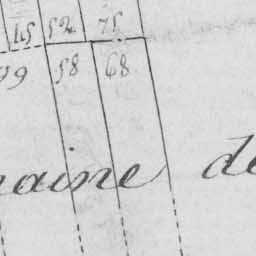 45 52 75
99 58 68
maine de